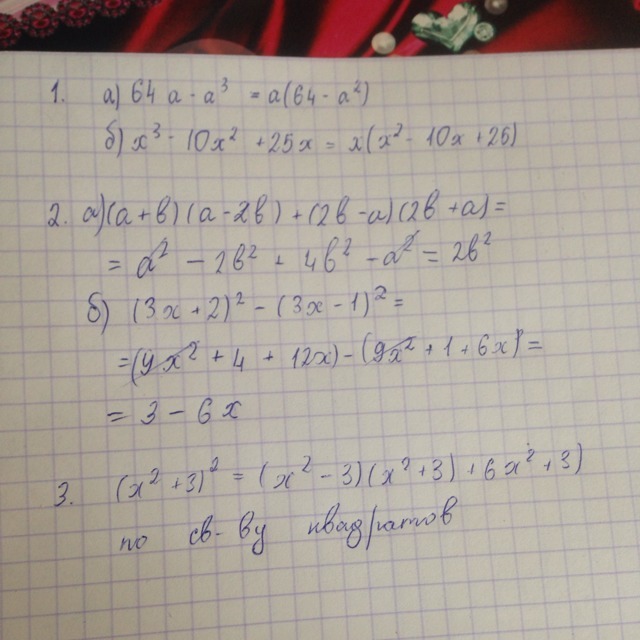 1. а) 64 a - a³ = a(64 - a²)
б) x³ - 10x² + 25x = x(x² - 10x + 25)
2. а) (a + b)(a - 2b) + (2b - a)(2b + a) =
= a² - 2b² + 4b² - a² = 2b²
б) (3x + 2)² - (3x - 1)² =
= (9x² + 4 + 12x) - (9x² + 1 + 6x)² =
= 3 - 6x
3. (x² + 3)² = (x² - 3)(x² + 3) + 6x² + 3)
по св-ву квадратов